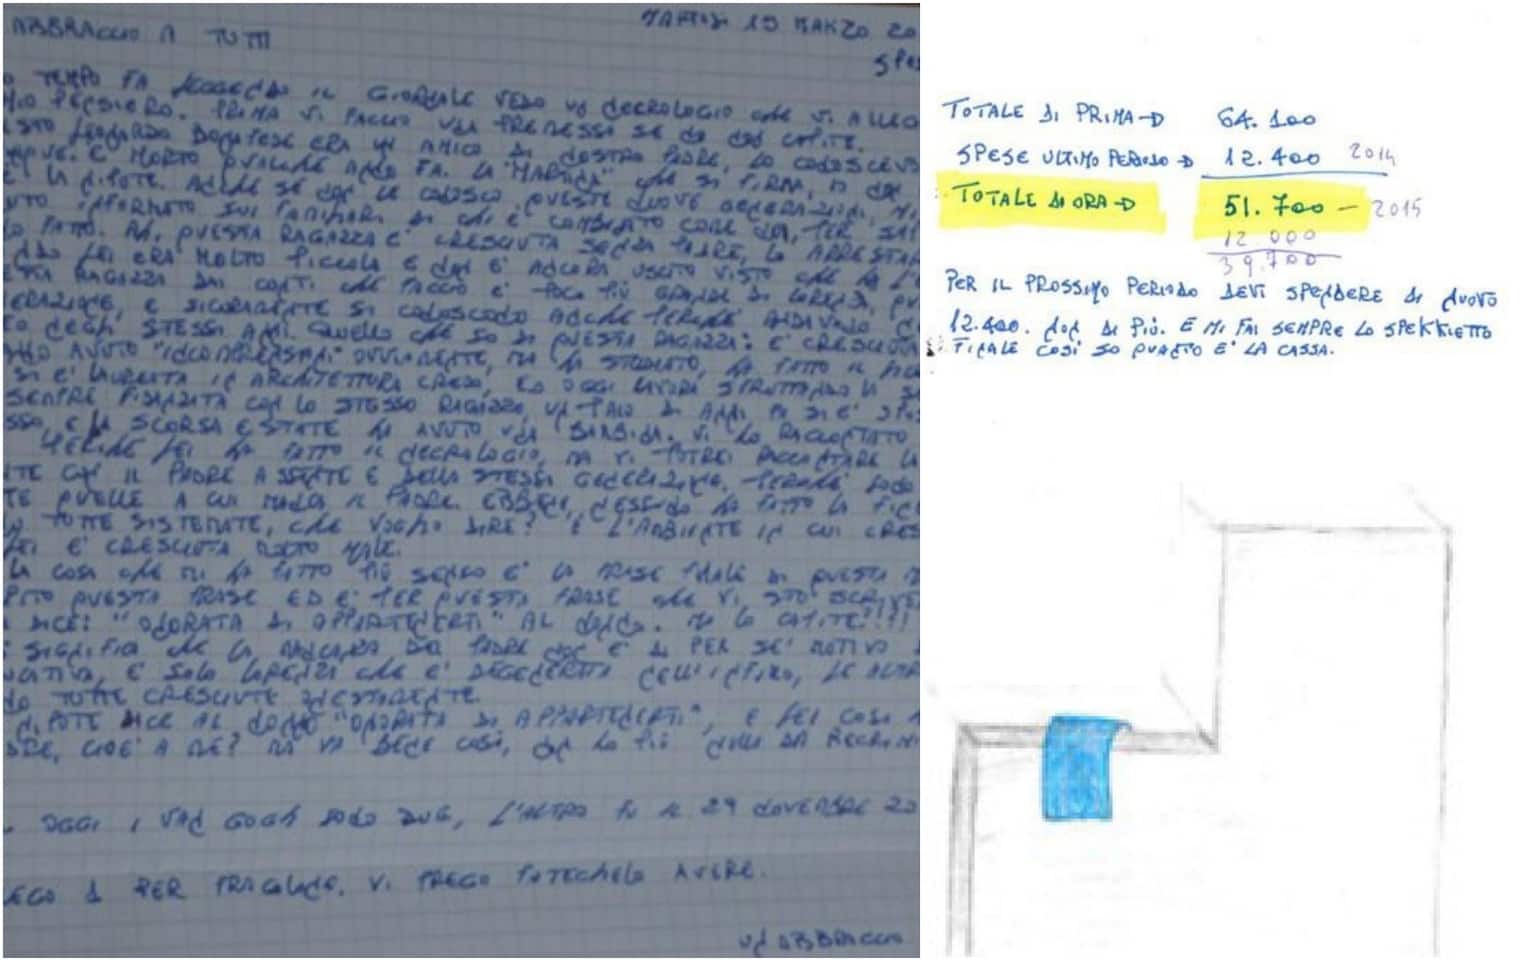 ABBRACCIO A TUTTI
MARTEDì 19 MARZO 20
SPE
O TEMPO FA LEGGENDO IL GIORNALE VEDO UN NECROLOGIO CHE VI ALLEG
MIO PENSIERO. PRIMA VI FACCIO UNA PREMESSA SE NO NON CAPITE.
ESTO LEONARDO BONAFESE ERA UN AMICO DI NOSTRO PADRE, LO CONOSCEV
E' MORTO QUALCHE ANNO FA. LA "MARTINA" CHE SI FIRMA,
E' LA NIPOTE. ANCHE SE NON LE CONOSCO, QUESTE NUOVE GENERAZIONI, MI
INFORMATO SUI FAMILIARI DI CHI E' COME
FATTO. QUESTA RAGAZZA E' CRESCIUTA SENZA PADRE, LO
LEI ERA MOLTO PICCOLA E NON E' ANCORA USCITO VISTO CHE HA L'E
RAGAZZA DAI CONTI CHE FACCIO E' POCO PIÙ GRANDE DI
ERAZIONE, E SICURAMENTE SI CONOSCONO ANCHE PERCHÈ ANDAVANO
DEGLI STESSI QUELLO CHE SO DI QUESTA RAGAZZA: E' CRESCIUTA
AVUTO OVVIAMENTE, MA HA STUDIATO, HA FATTO IL
SI E' LAUREATA IN ARCHITETTURA CREDO, ED OGGI LAVORA SFRUTTANDO LA
SEMPRE FIDANZATA CON LO STESSO RAGAZZO, UN PAIO DI ANNI FA SI E' SPO
SSO, E LA SCORSA ESTATE HA AVUTO UNA BAMBINA. VI HO RACCONTATO
PERCHÈ LEI HA FATTO IL NECROLOGIO, MA VI POTREI RACCONTARE LA
NTE CON IL PADRE ASSENTE E DELLA STESSA GENERAZIONE. PERCHÈ SONO
TE QUELLE A CUI MANCA IL PADRE. EBBENE, NESSUNA HA FATTO LA FINE
TUTTE SISTEMATE, CHE VOGLIO DIRE? E' L'AMBIENTE IN CUI CRES
LEI E' CRESCIUTA MOLTO MALE.
LA COSA CHE MI HA FATTO PIÙ SENSO E' LA FRASE FINALE DI QUESTA
PITO QUESTA FRASE ED E' PER QUESTA FRASE CHE VI STO SCRIVE
DICE: "ONORATA DI APPARTENERTI" AL NONNO. MA LO CAPITE!!!!
SIGNIFICA CHE LA MANCANZA DEL PADRE NON E' DI PER SE' MOTIVO
E' SOLO LORENZA CHE E' DEGENERATA NELL'INFIMO, LE ALTR
NO TUTTE CRESCIUTE ONESTAMENTE.
NIPOTE DICE AL NONNO "ONORATA DI APPARTENERTI", E LEI COSA
DIRE, CIOE' A ME? MA VA BENE COSÌ, NON HO PIÙ NULLA DA RECRIMI
OGGI I VAN GOGH SONO DUE, L'ALTRO FU IL 29 NOVEMBRE 20
LEGO 1 PER FRAGOLONE. VI PREGO FATECHELO AVERE.
UN ABBRACCIO
TOTALE DI PRIMA→ 64.100
SPESE ULTIMO PERIODO→ 12.400 2014
TOTALE DI ORA→ 51.700 — 2015
12.000
39.700
PER IL PROSSIMO PERIODO DEVI SPENDERE DI NUOVO
12.400. NON DI PIÙ. E MI FAI SEMPRE LO SPEKKIETTO
FINALE COSÌ SO QUANTO E' LA CASSA.